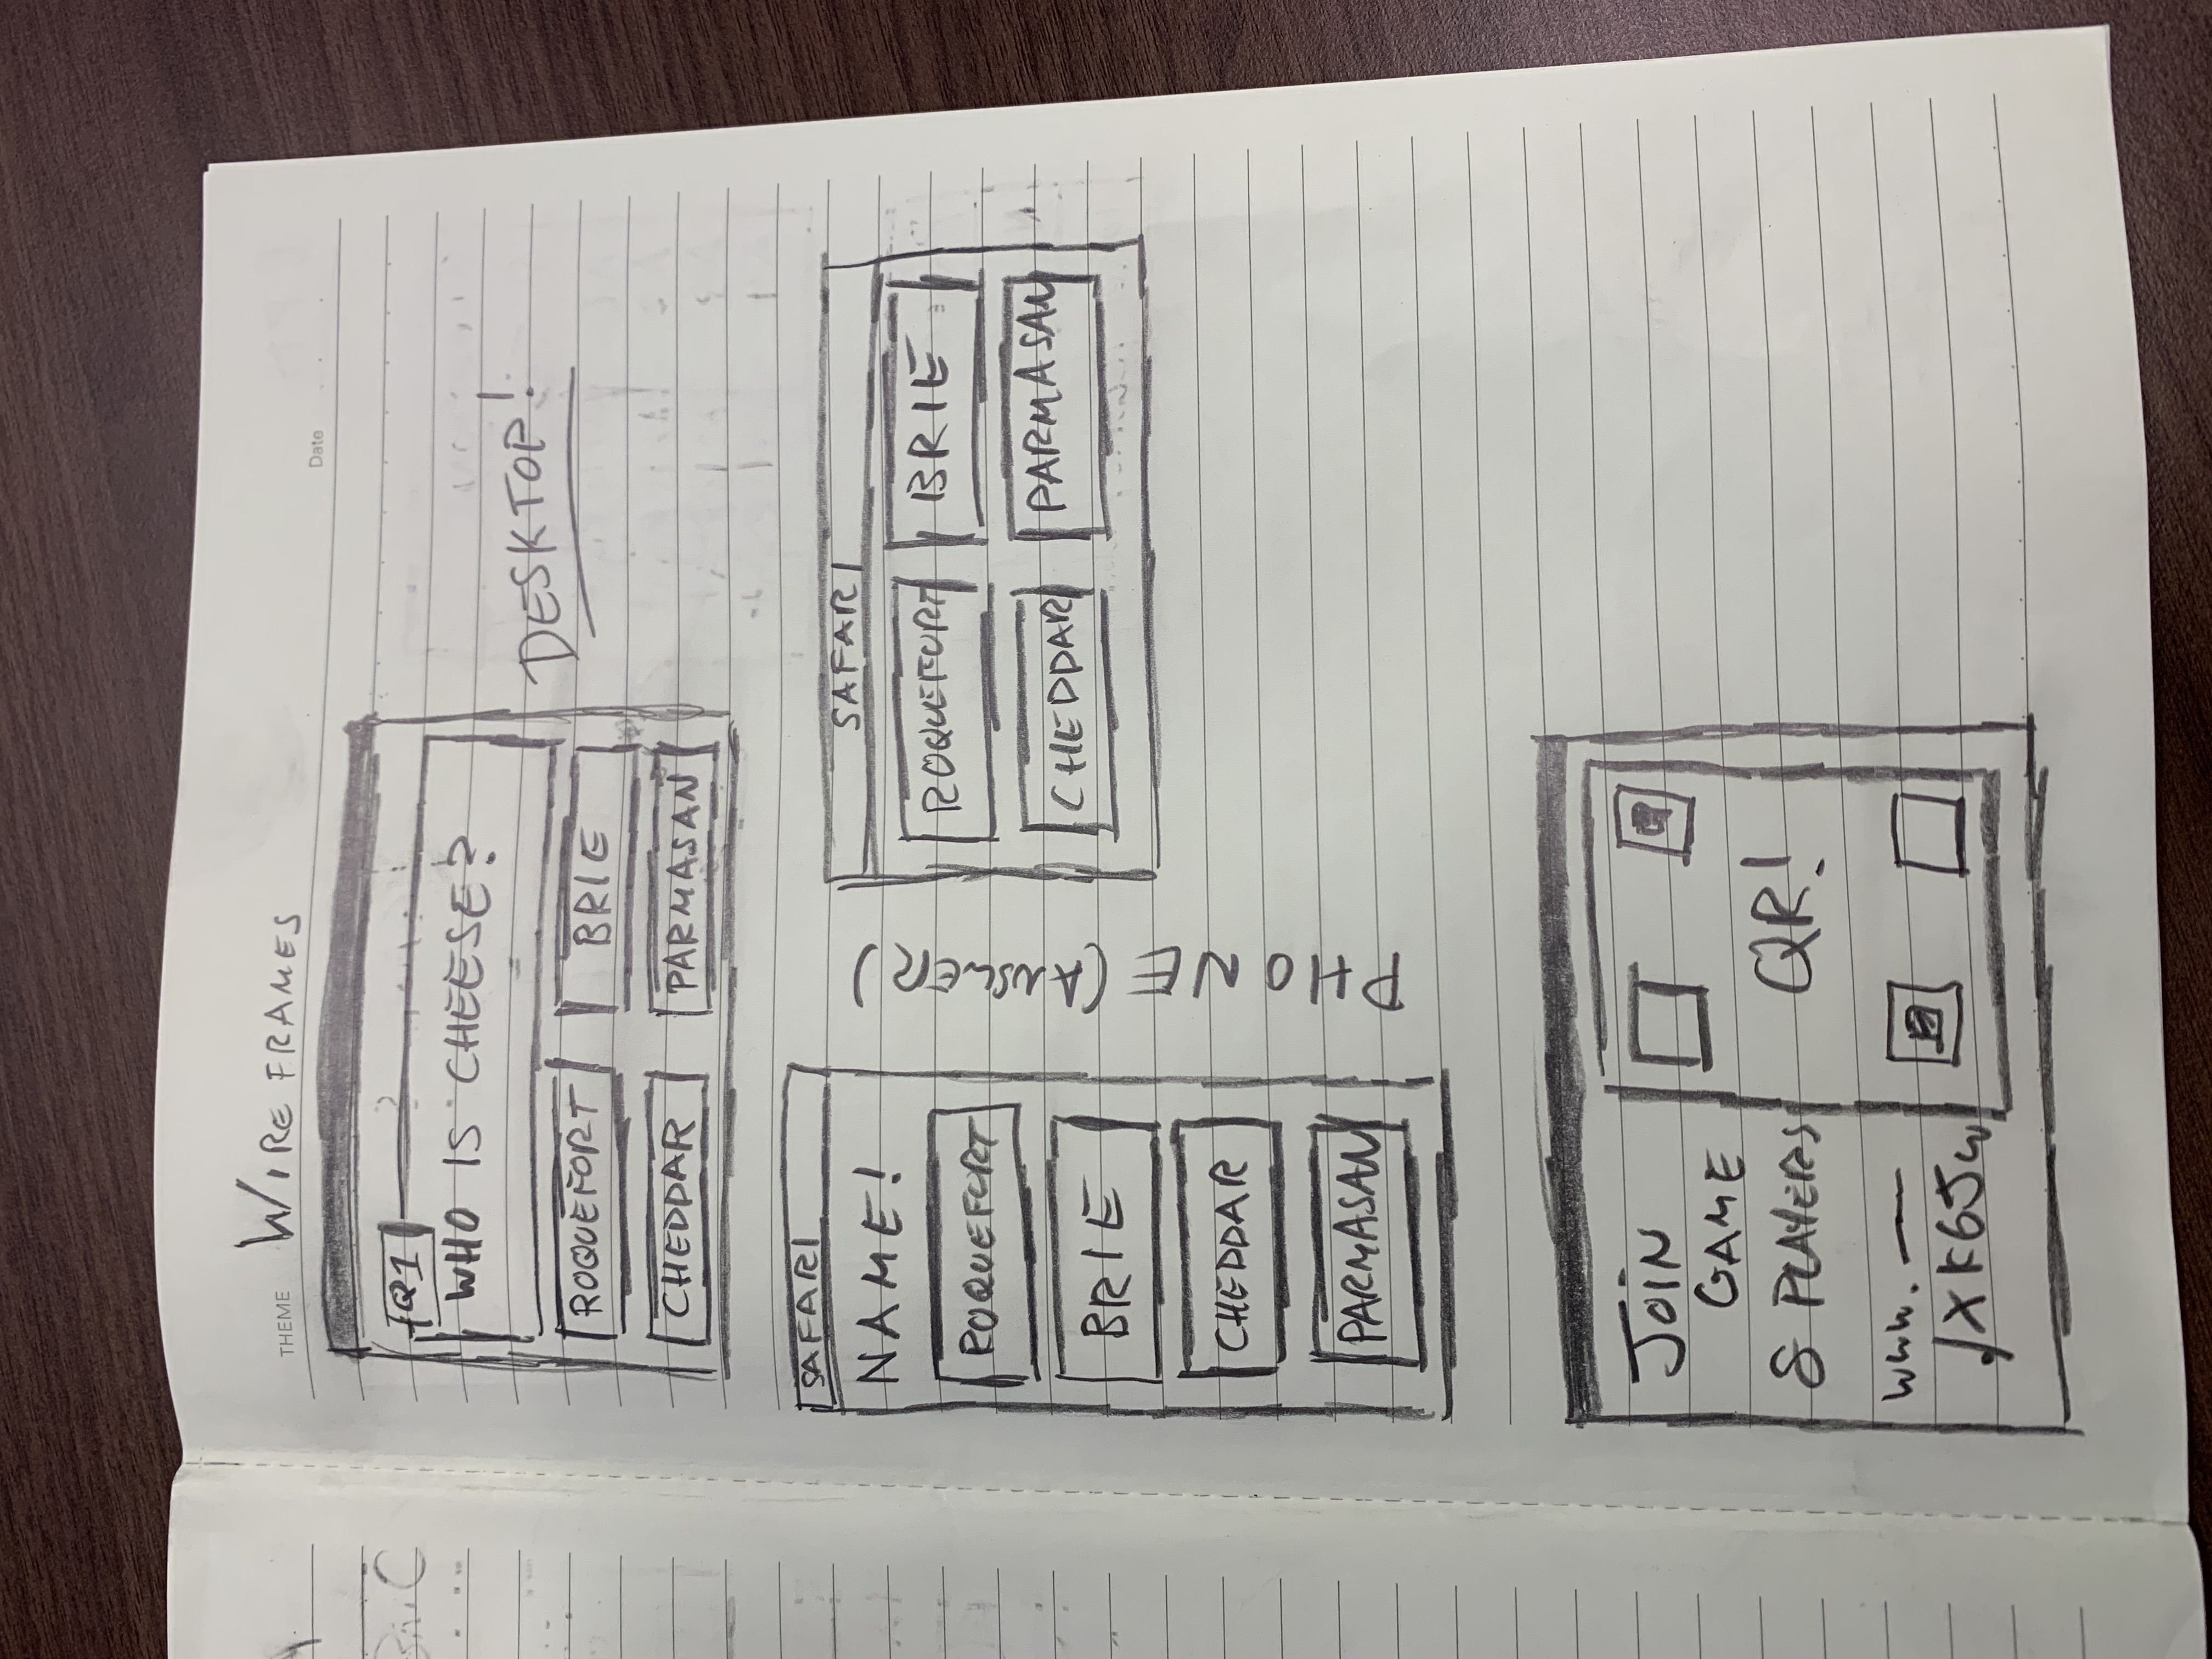 THEME WIRE FRAMES
Date
Q1
WHO IS CHEESE?
ROQUEFORT BRIE
CHEDDAR PARMASAN
DESKTOP!
SAFARI
NAME!
ROQUEFORT
BRIE
CHEDDAR
PARMASAN
PHONE (ANSWER)
SAFARI
ROQUEFORT BRIE
CHEDDAR PARMASAN
JOIN
GAME
8 PLAYERS
www.
/XK6JW
QR!